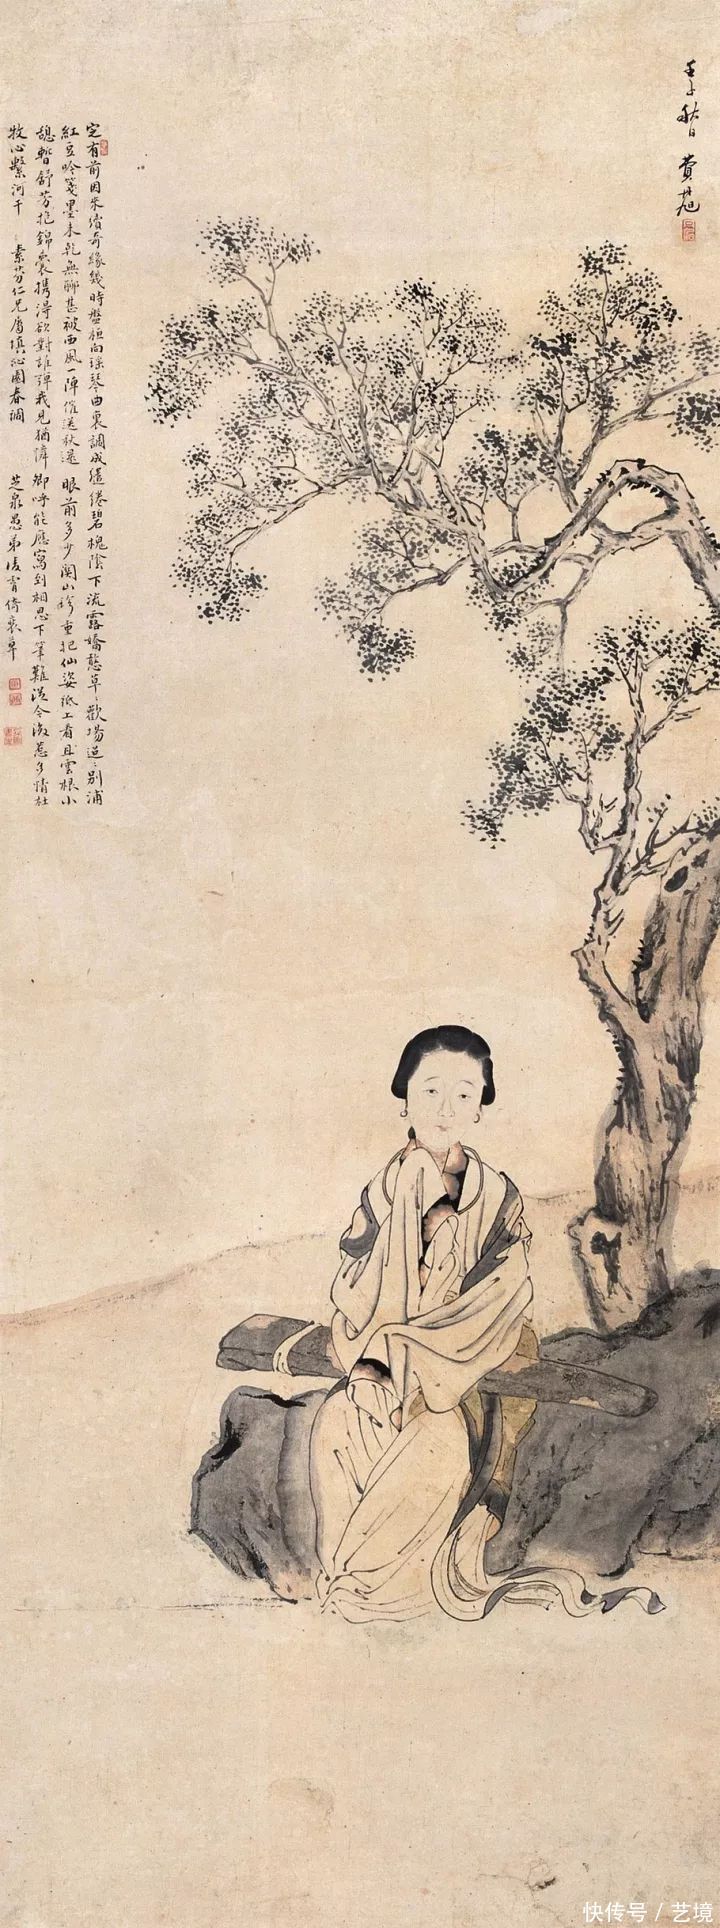 秋日 費丹旭
定有前因來續奇緣幾時盤桓向瑤琴曲裏調成繾綣碧槐陰下流露嬌憨草〻歡場迢〻別浦
紅豆吟箋墨未乾無聊甚被西風一陣催送秋還 眼前多少關山珍重把仙姿紙上看且雲根小
憩暫舒芳抱錦囊攜得欲對誰彈我見猶憐卿呼能應寫到相思下筆難從今後惹多情杜
牧心繫河干 素芬仁兄屬填沁園春調 芝泉愚弟凌霄倚裝草
快传号/艺境